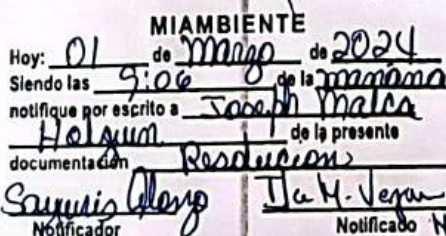 MIAMBIENTE
Hoy: 01 de Marzo de 2024
Siendo las 9:06 de la mañana
notifique por escrito a Joseph Malca
Holguin de la presente
documentación Resolucion
Sayuris Alonzo
Notificador Notificado